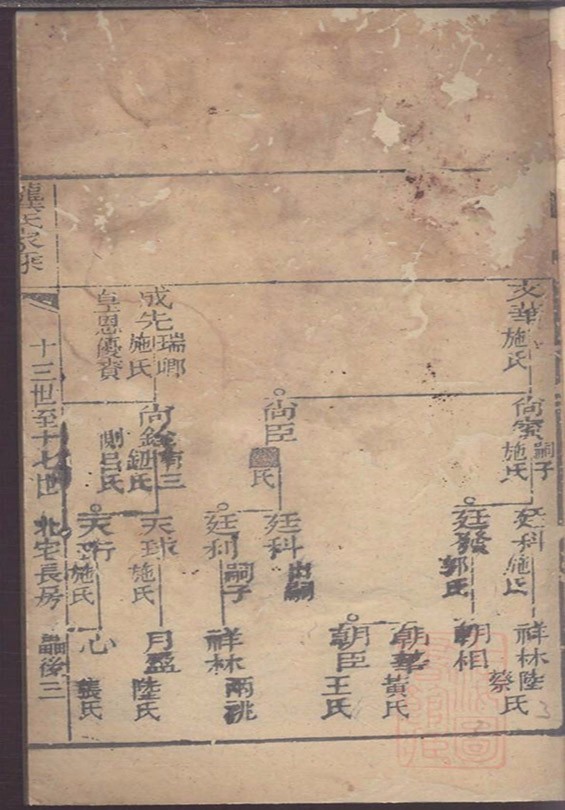 文華
施氏
成先
瑞鄉
施氏
皇恩優賚
尚賓
嗣子
施氏
尚臣
氏
尚
鈕氏
側呂氏
廷科
施氏
廷發
郭氏
廷科
出嗣
廷利
嗣子
天球
施氏
天
施氏
祥林
陸氏
蔡氏
朝相
朝華
黃氏
朝臣
王氏
祥林
兩祧
月盈
陸氏
心
張氏
龔氏家乘
十三世至十七世
北宅長房
後三